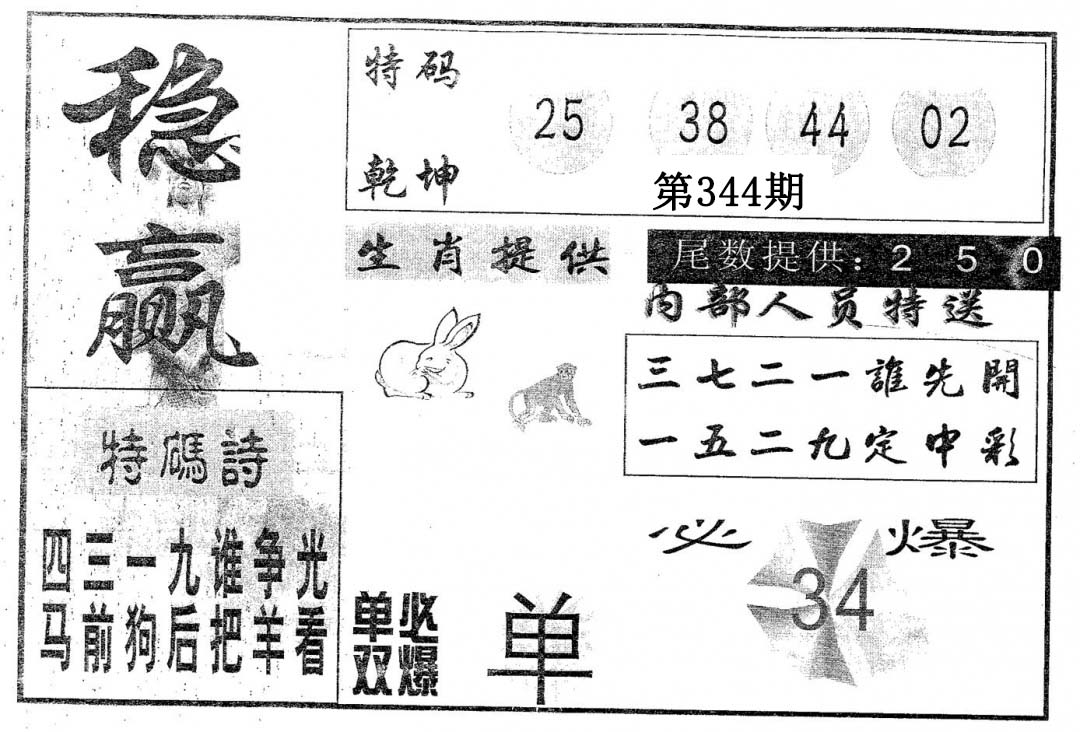 稳赢
特码
25 38 44 02
乾坤
第344期
生肖提供
尾数提供：2 5 0
内部人员特送
三七二一誰先開
一五二九定中彩
特碼詩
四三一九谁争光
马前狗后把羊看
单双
必爆
单
必爆
34